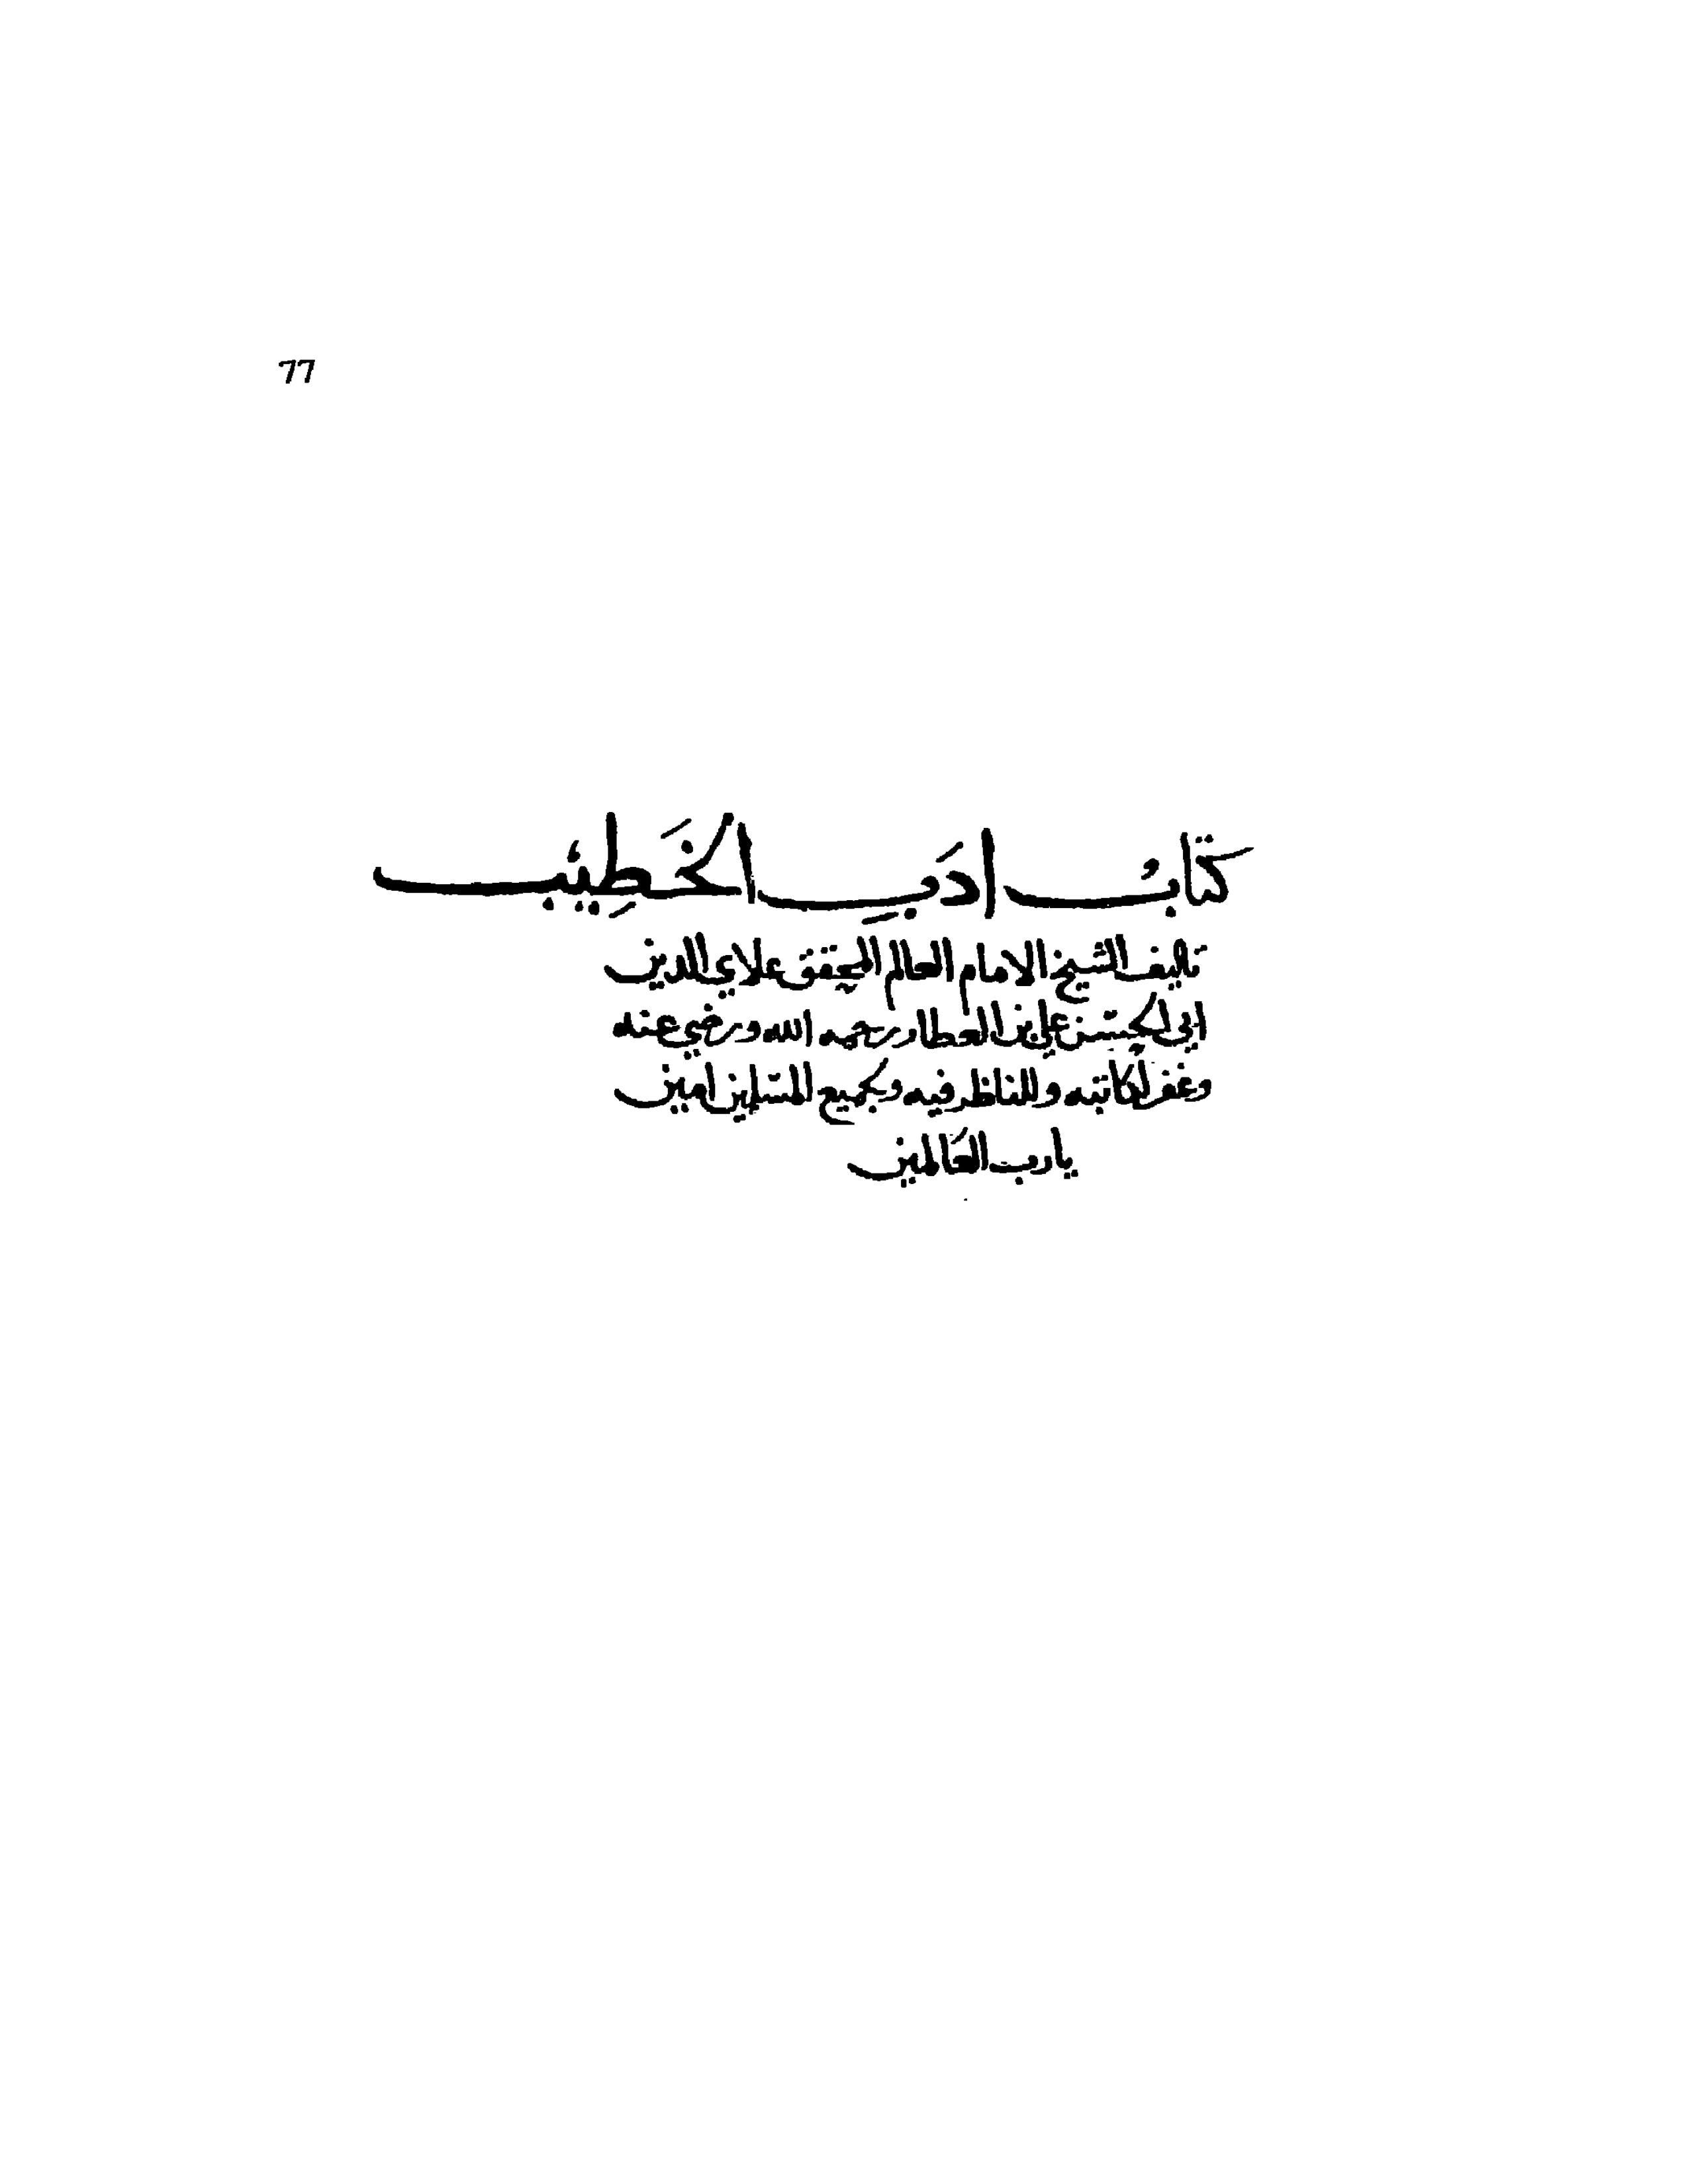 77
كتَابُ ادَبِ الخَطِيب
تاليف الشيخ الامام العالم المحقق علاي الدين
ابي الحسن علي بن العطار رحمه الله ورضي عنه
وغفر لكاتبه وللناظر فيه ولجميع المسلمين امين
يارب العالمين